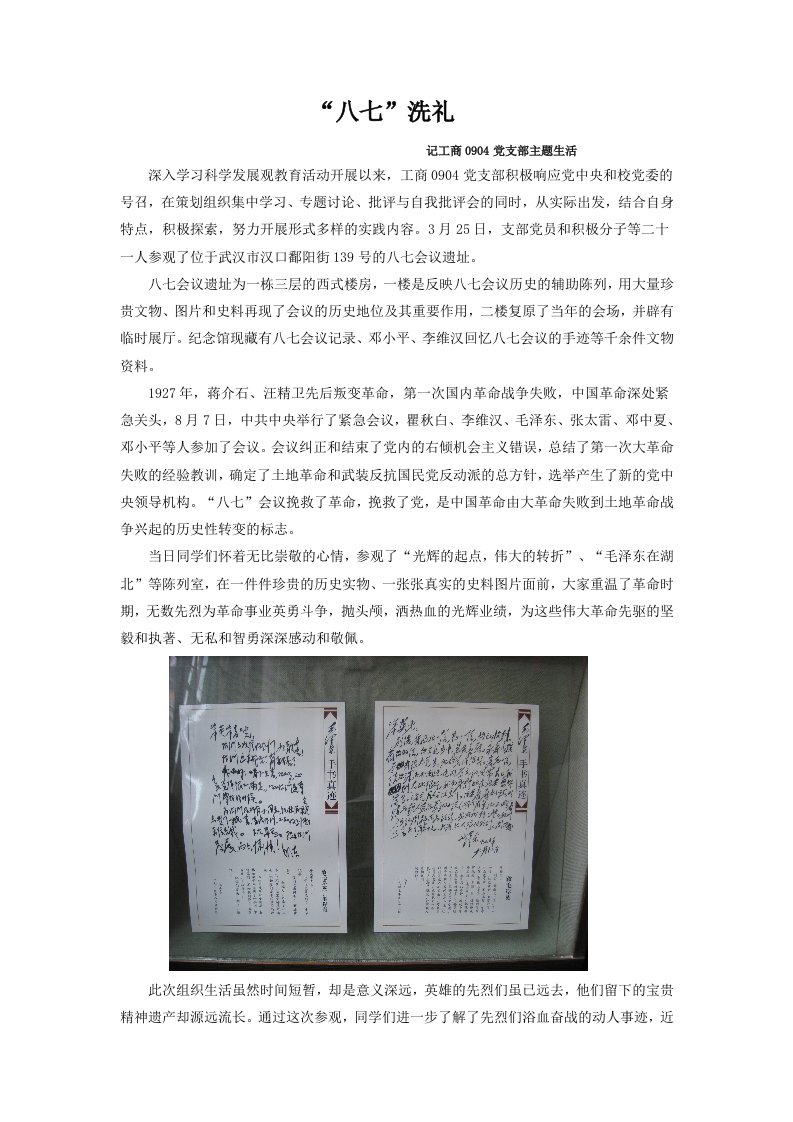 “八七”洗礼
记工商0904党支部主题生活
深入学习科学发展观教育活动开展以来，工商0904党支部积极响应党中央和校党委的
号召，在策划组织集中学习、专题讨论、批评与自我批评会的同时，从实际出发，结合自身
特点，积极探索，努力开展形式多样的实践内容。3月25日，支部党员和积极分子等二十
一人参观了位于武汉市汉口鄱阳街139号的八七会议遗址。
八七会议遗址为一栋三层的西式楼房，一楼是反映八七会议历史的辅助陈列，用大量珍
贵文物、图片和史料再现了会议的历史地位及其重要作用，二楼复原了当年的会场，并辟有
临时展厅。纪念馆现藏有八七会议记录、邓小平、李维汉回忆八七会议的手迹等千余件文物
资料。
1927年，蒋介石、汪精卫先后叛变革命，第一次国内革命战争失败，中国革命深处紧
急关头，8月7日，中共中央举行了紧急会议，瞿秋白、李维汉、毛泽东、张太雷、邓中夏、
邓小平等人参加了会议。会议纠正和结束了党内的右倾机会主义错误，总结了第一次大革命
失败的经验教训，确定了土地革命和武装反抗国民党反动派的总方针，选举产生了新的党中
央领导机构。“八七”会议挽救了革命，挽救了党，是中国革命由大革命失败到土地革命战
争兴起的历史性转变的标志。
当日同学们怀着无比崇敬的心情，参观了“光辉的起点，伟大的转折”、“毛泽东在湖
北”等陈列室，在一件件珍贵的历史实物、一张张真实的史料图片面前，大家重温了革命时
期，无数先烈为革命事业英勇斗争，抛头颅，洒热血的光辉业绩，为这些伟大革命先驱的坚
毅和执著、无私和智勇深深感动和敬佩。
毛泽东手书真迹
毛泽东手书真迹
此次组织生活虽然时间短暂，却是意义深远，英雄的先烈们虽已远去，他们留下的宝贵
精神遗产却源远流长。通过这次参观，同学们进一步了解了先烈们浴血奋战的动人事迹，近